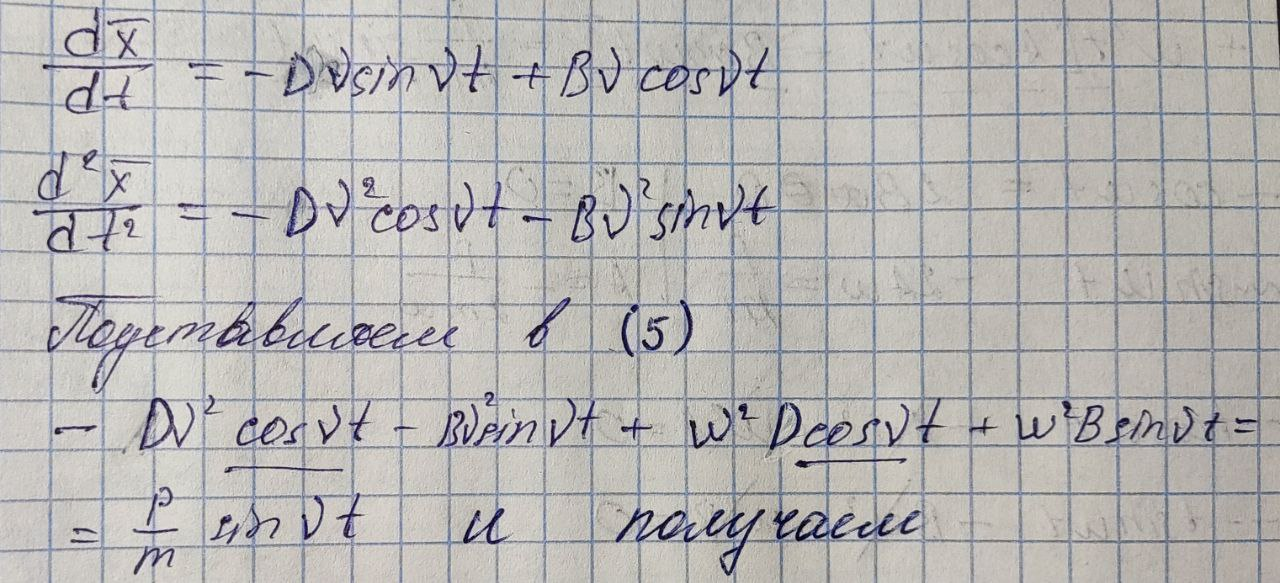 dx̄/dt = - Dν sin νt + Bν cos νt
d²x̄/dt² = - Dν² cos νt - Bν² sin νt
Подставляем в (5)
- Dν² cos νt - Bν² sin νt + ω² D cos νt + ω² B sin νt =
= P/m sin νt и получаем